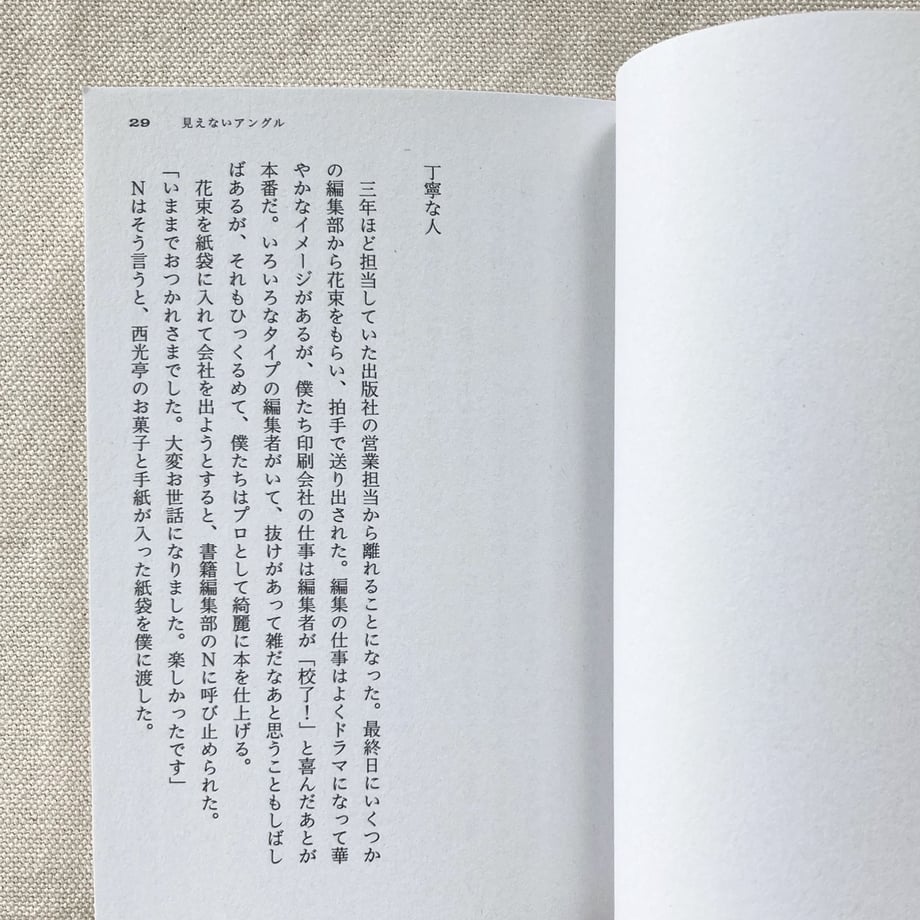 29 見えないアングル
丁寧な人
三年ほど担当していた出版社の営業担当から離れることになった。最終日にいくつか
の編集部から花束をもらい、拍手で送り出された。編集の仕事はよくドラマになって華
やかなイメージがあるが、僕たち印刷会社の仕事は編集者が「校了！」と喜んだあとが
本番だ。いろいろなタイプの編集者がいて、抜けがあって雑だなあと思うこともしばし
ばあるが、それもひっくるめて、僕たちはプロとして綺麗に本を仕上げる。
花束を紙袋に入れて会社を出ようとすると、書籍編集部のNに呼び止められた。
「いままでおつかれさまでした。大変お世話になりました。楽しかったです」
Nはそう言うと、西光亭のお菓子と手紙が入った紙袋を僕に渡した。